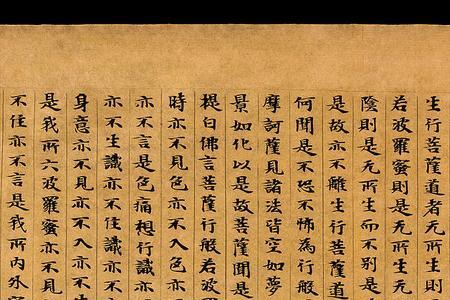 生行菩薩道者无所生則
若波羅蜜則是无所生无
陰則是无所生而不別是
是故亦不離生行菩薩道
何聞是不恐不怖為行般
摩訶薩見諸法皆空如夢
景如化以是故菩薩聞是
提白佛言菩薩行般若波
時亦不見色亦不入色亦
亦不言是色痛想行識亦
亦不生識亦不住識亦不
身意亦不見亦不入亦不
是我所六波羅蜜亦不見
不住亦不言是我所內外